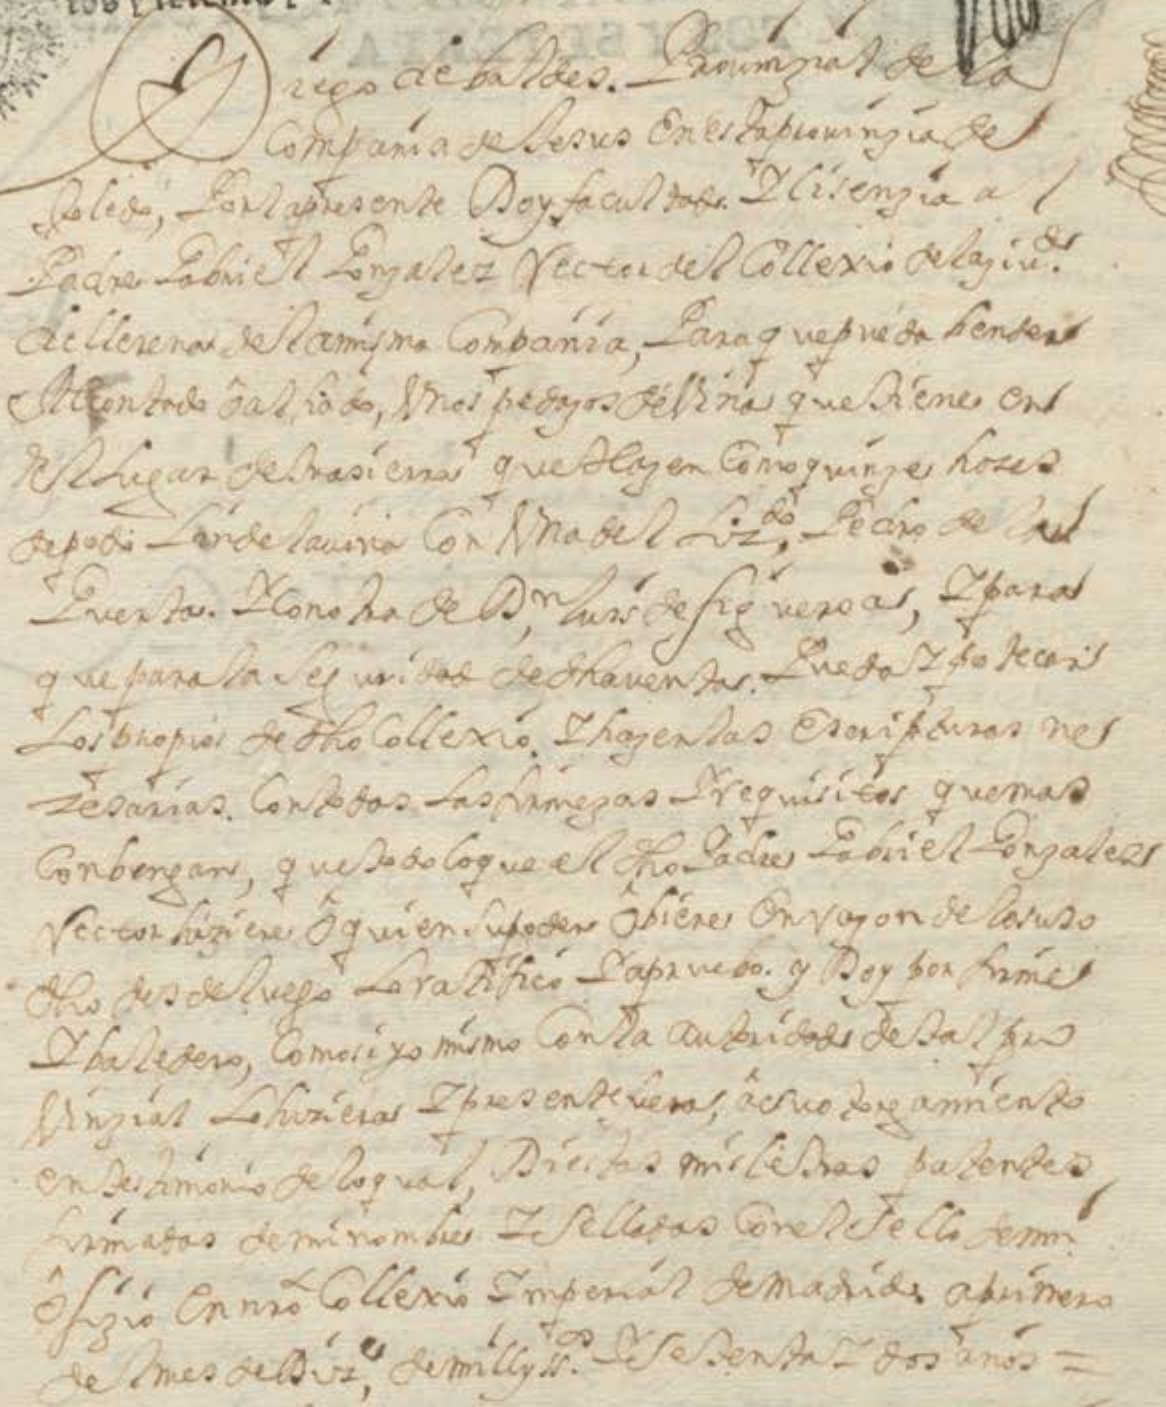 Diego de baldes. Prouinzial de la
Compania de Jesus En esta prouinzia de
toledo, Por la presente Doy facultad. Y lisenzia a l
Padre Gabriel Gonzalez Rector del Collexio de la ziud.
de llerena de la misma Compañia, Para q pueda bender
Al contado o al fiado, Unos pedazos de Viña que tiene en
el lugar de trasierra que Hazen Como quinze hozes
de poda Linde la viña Con Una del Lizdo, Pedro de la
Puerta. Y Con otra de Dn, luis de figueroa, Y para
que para la seguridad de dha venta. Pueda Ypotecar
Los propios de dho Collexio. Y hazer las Escripturas ne
zesarias. Con todas las firmezas Y requisitos que mas
Conbengan, que todo lo que el dho Padre Gabriel Gonzalez
Rector hiziere O quien su poder Obiere En razon de lo suso
dho desde luego Lo ratifico Y apruebo. y Doy por firme
Y baledero, Como si yo mismo Con la autoridad de tal pro
Vinzial Lo hiziera Y presente fuera, a su otorgamiento
en testimonio de lo qual, Di estas mis letras patentes
firmadas de mi nombre Y Selladas Con el Sello de mi
Ofizio En nro Collexio Imperial de Madrid. a primero
del mes de Diz, de mill y ss. Y Setenta Y dos años =